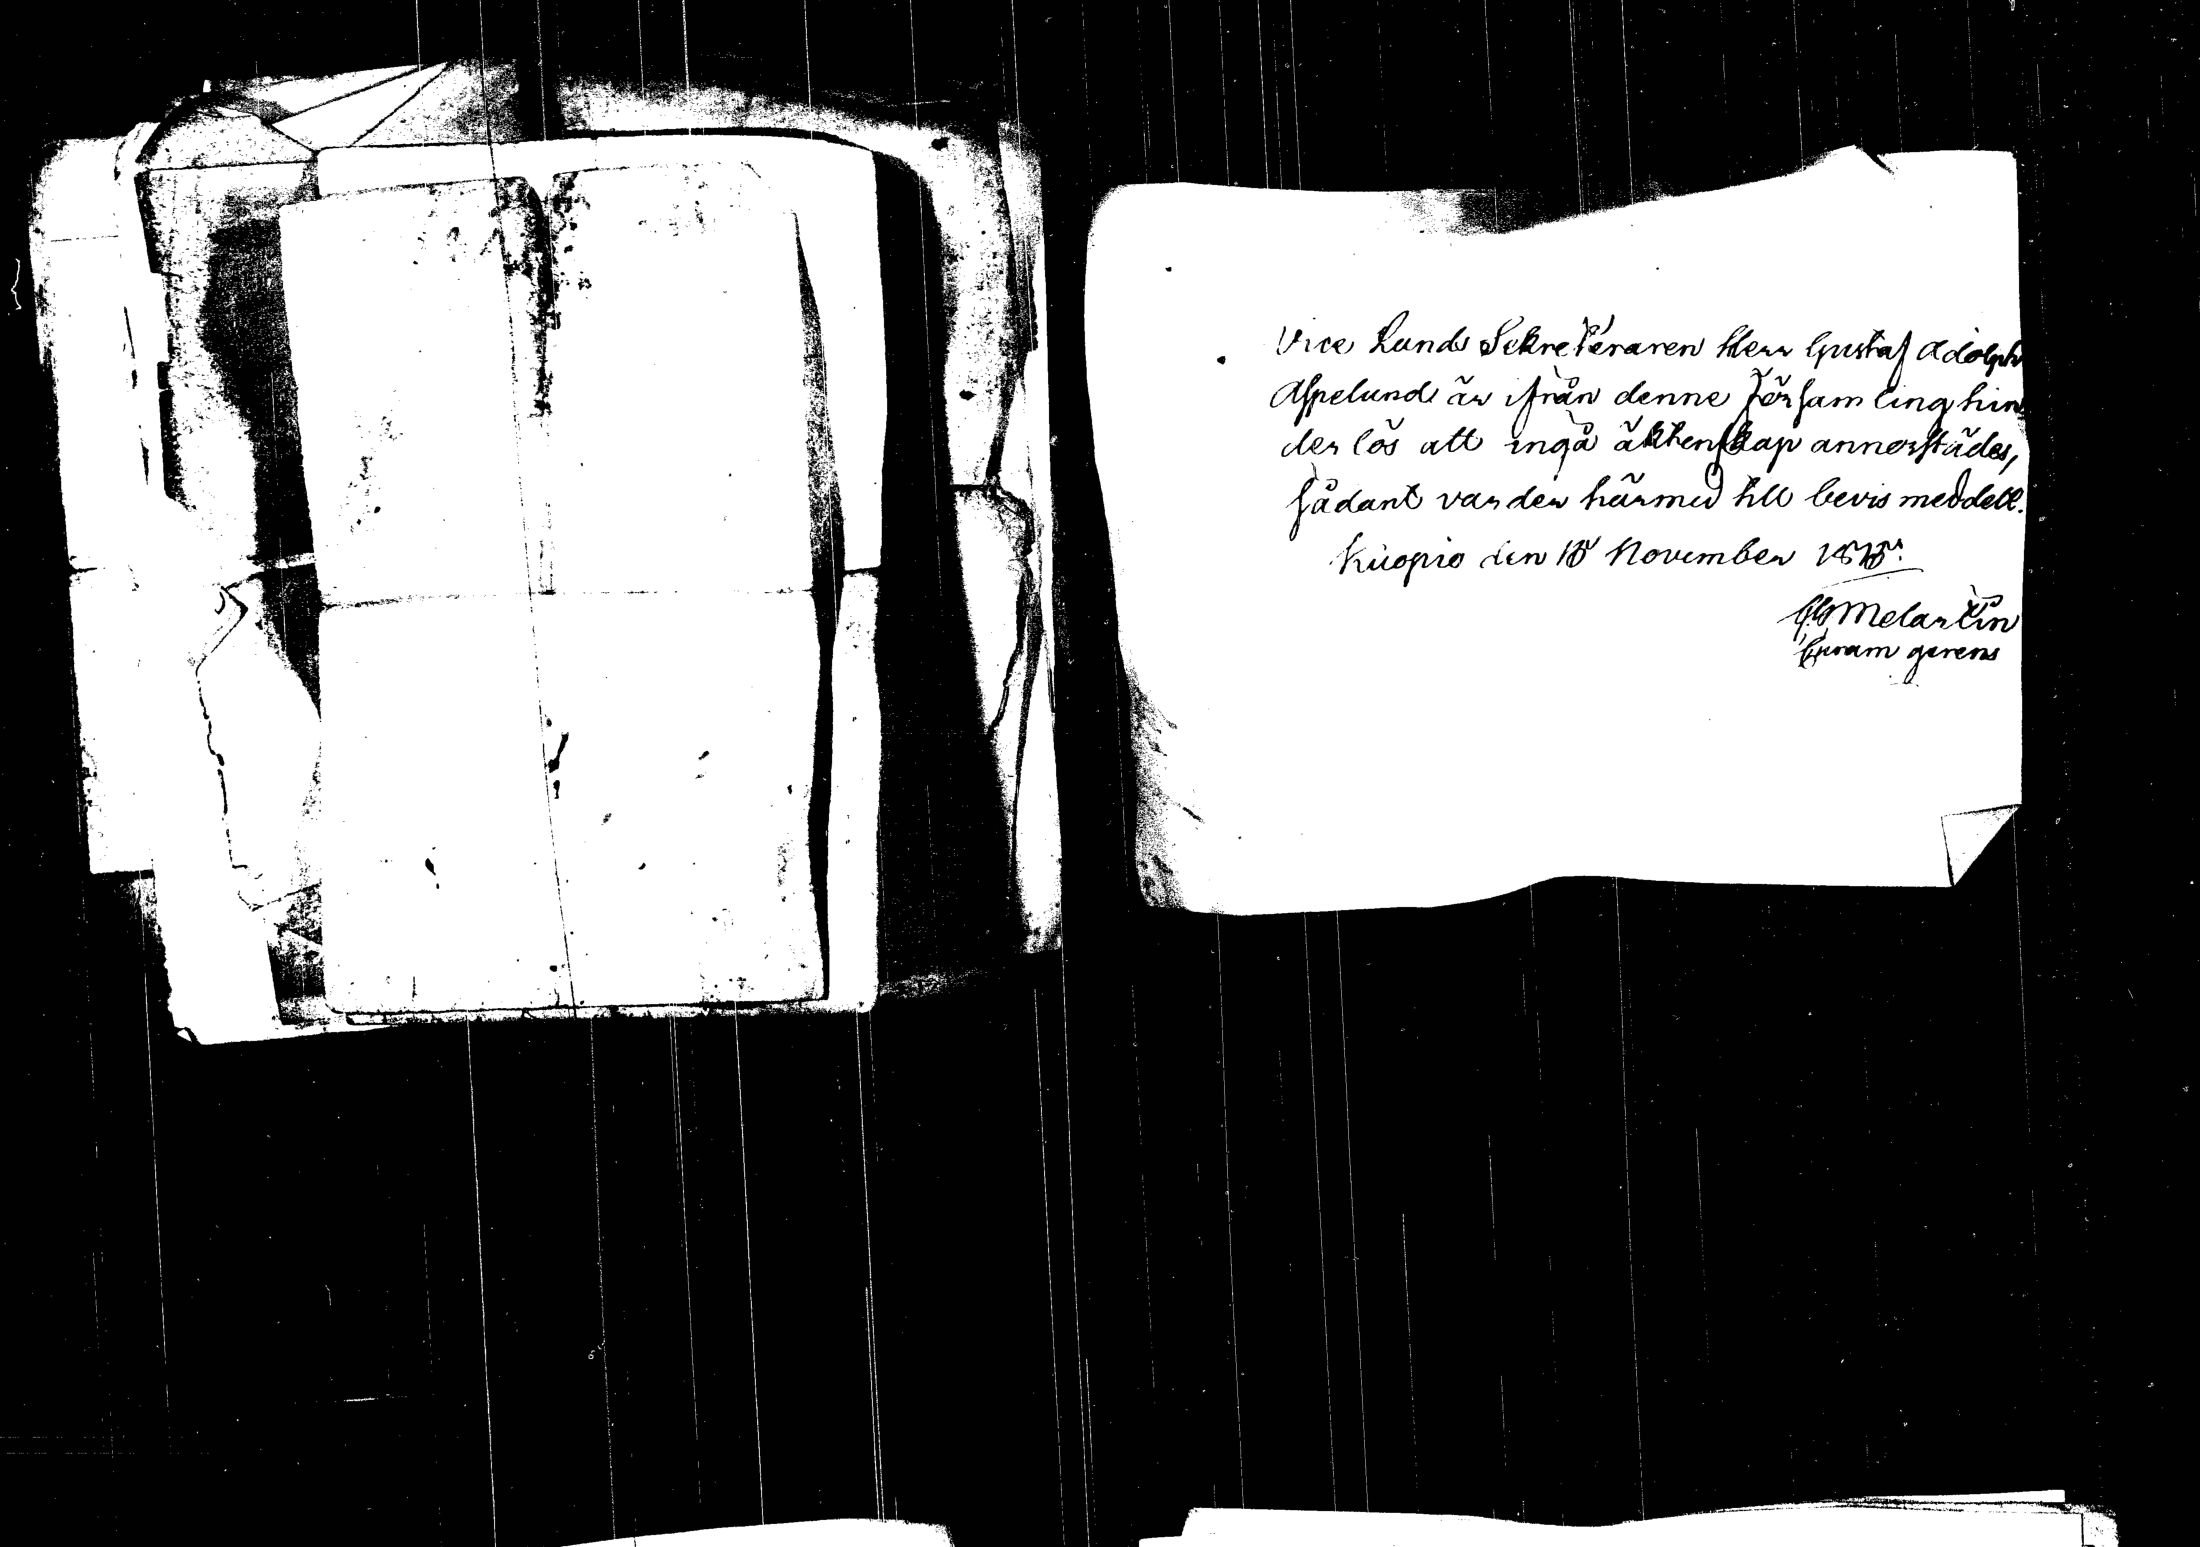 Vice Lands Sekreteraren Herr Gustaf Adolph
Aspelund är ifrån denne Församling hin
der lös att ingå äktenskap annorstädes,
sådant varder härmed till bevis meddelt.
Kuopio den 18 November 1878.
Melartin
Curam gerens